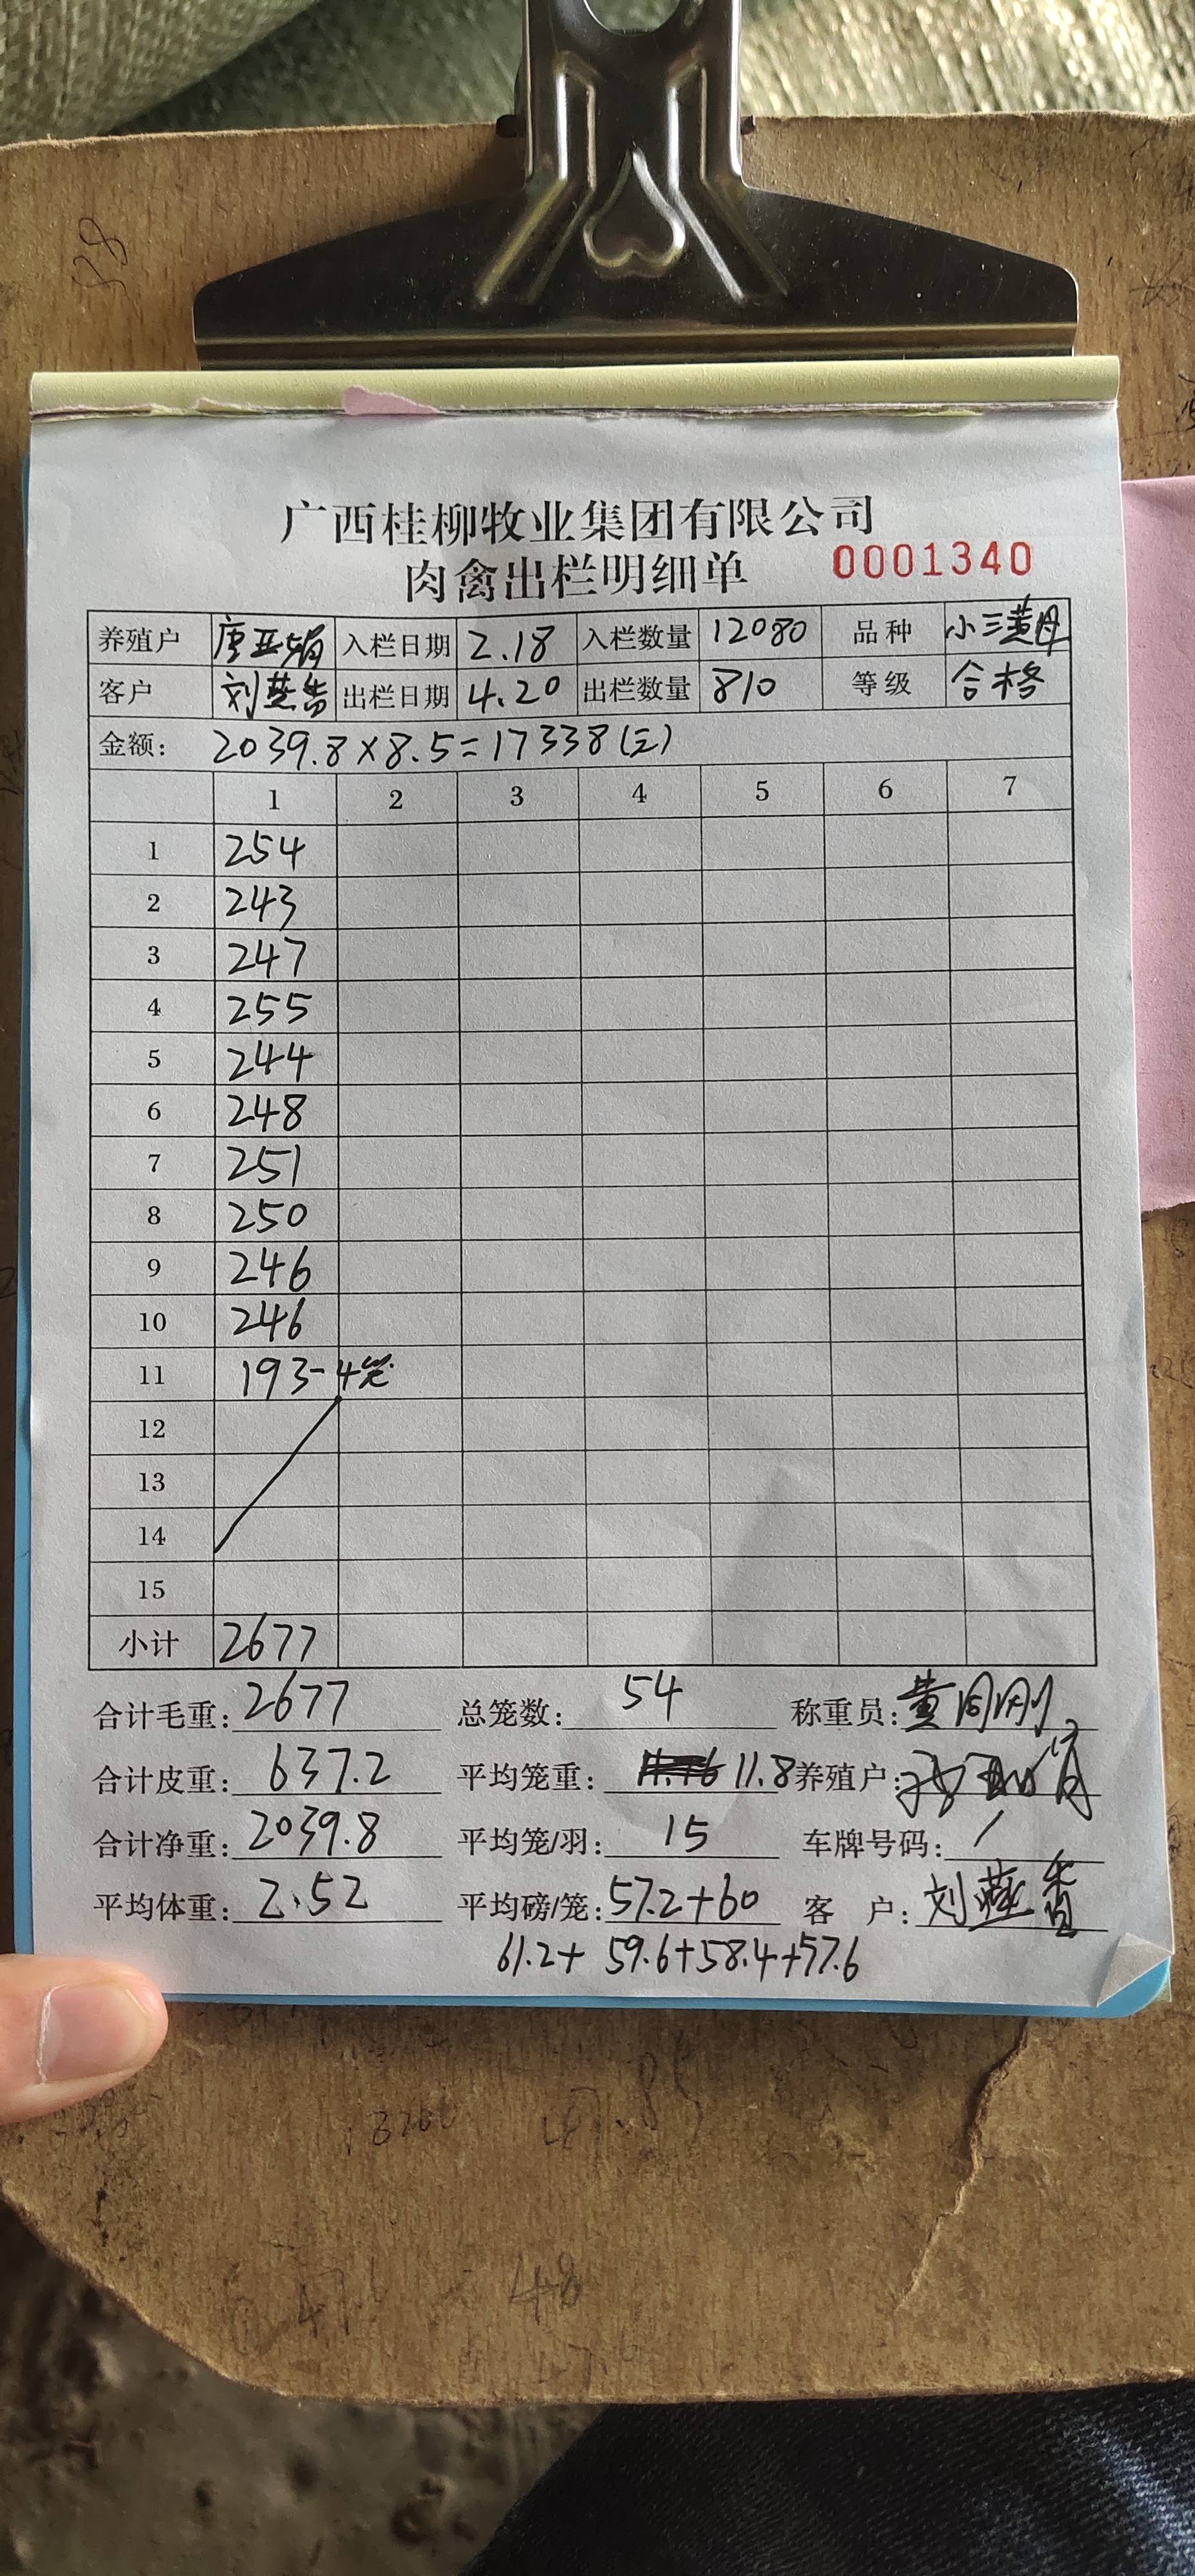 广西桂柳牧业集团有限公司
肉禽出栏明细单 0001340
养殖户 唐亚娟 入栏日期 2.18 入栏数量 12080 品种 小三黄母
客户 刘燕香 出栏日期 4.20 出栏数量 810 等级 合格
金额: 2039.8×8.5=17338(元)
1 2 3 4 5 6 7
1 254
2 243
3 247
4 255
5 244
6 248
7 251
8 250
9 246
10 246
11 193-4笼
12
13
14
15
小计 2677
合计毛重: 2677 总笼数: 54 称重员: 黄同刚
合计皮重: 637.2 平均笼重: 11.8 养殖户:
合计净重: 2039.8 平均笼/羽: 15 车牌号码: /
平均体重: 2.52 平均磅/笼: 57.2+60 客 户: 刘燕香
61.2+ 59.6+58.4+57.6